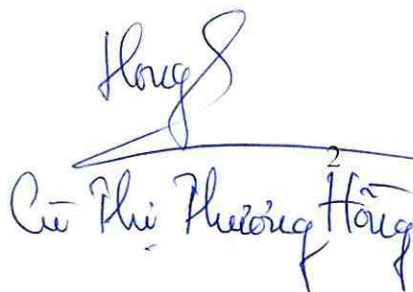 Hong
2
Cù Thị Phương Hồng